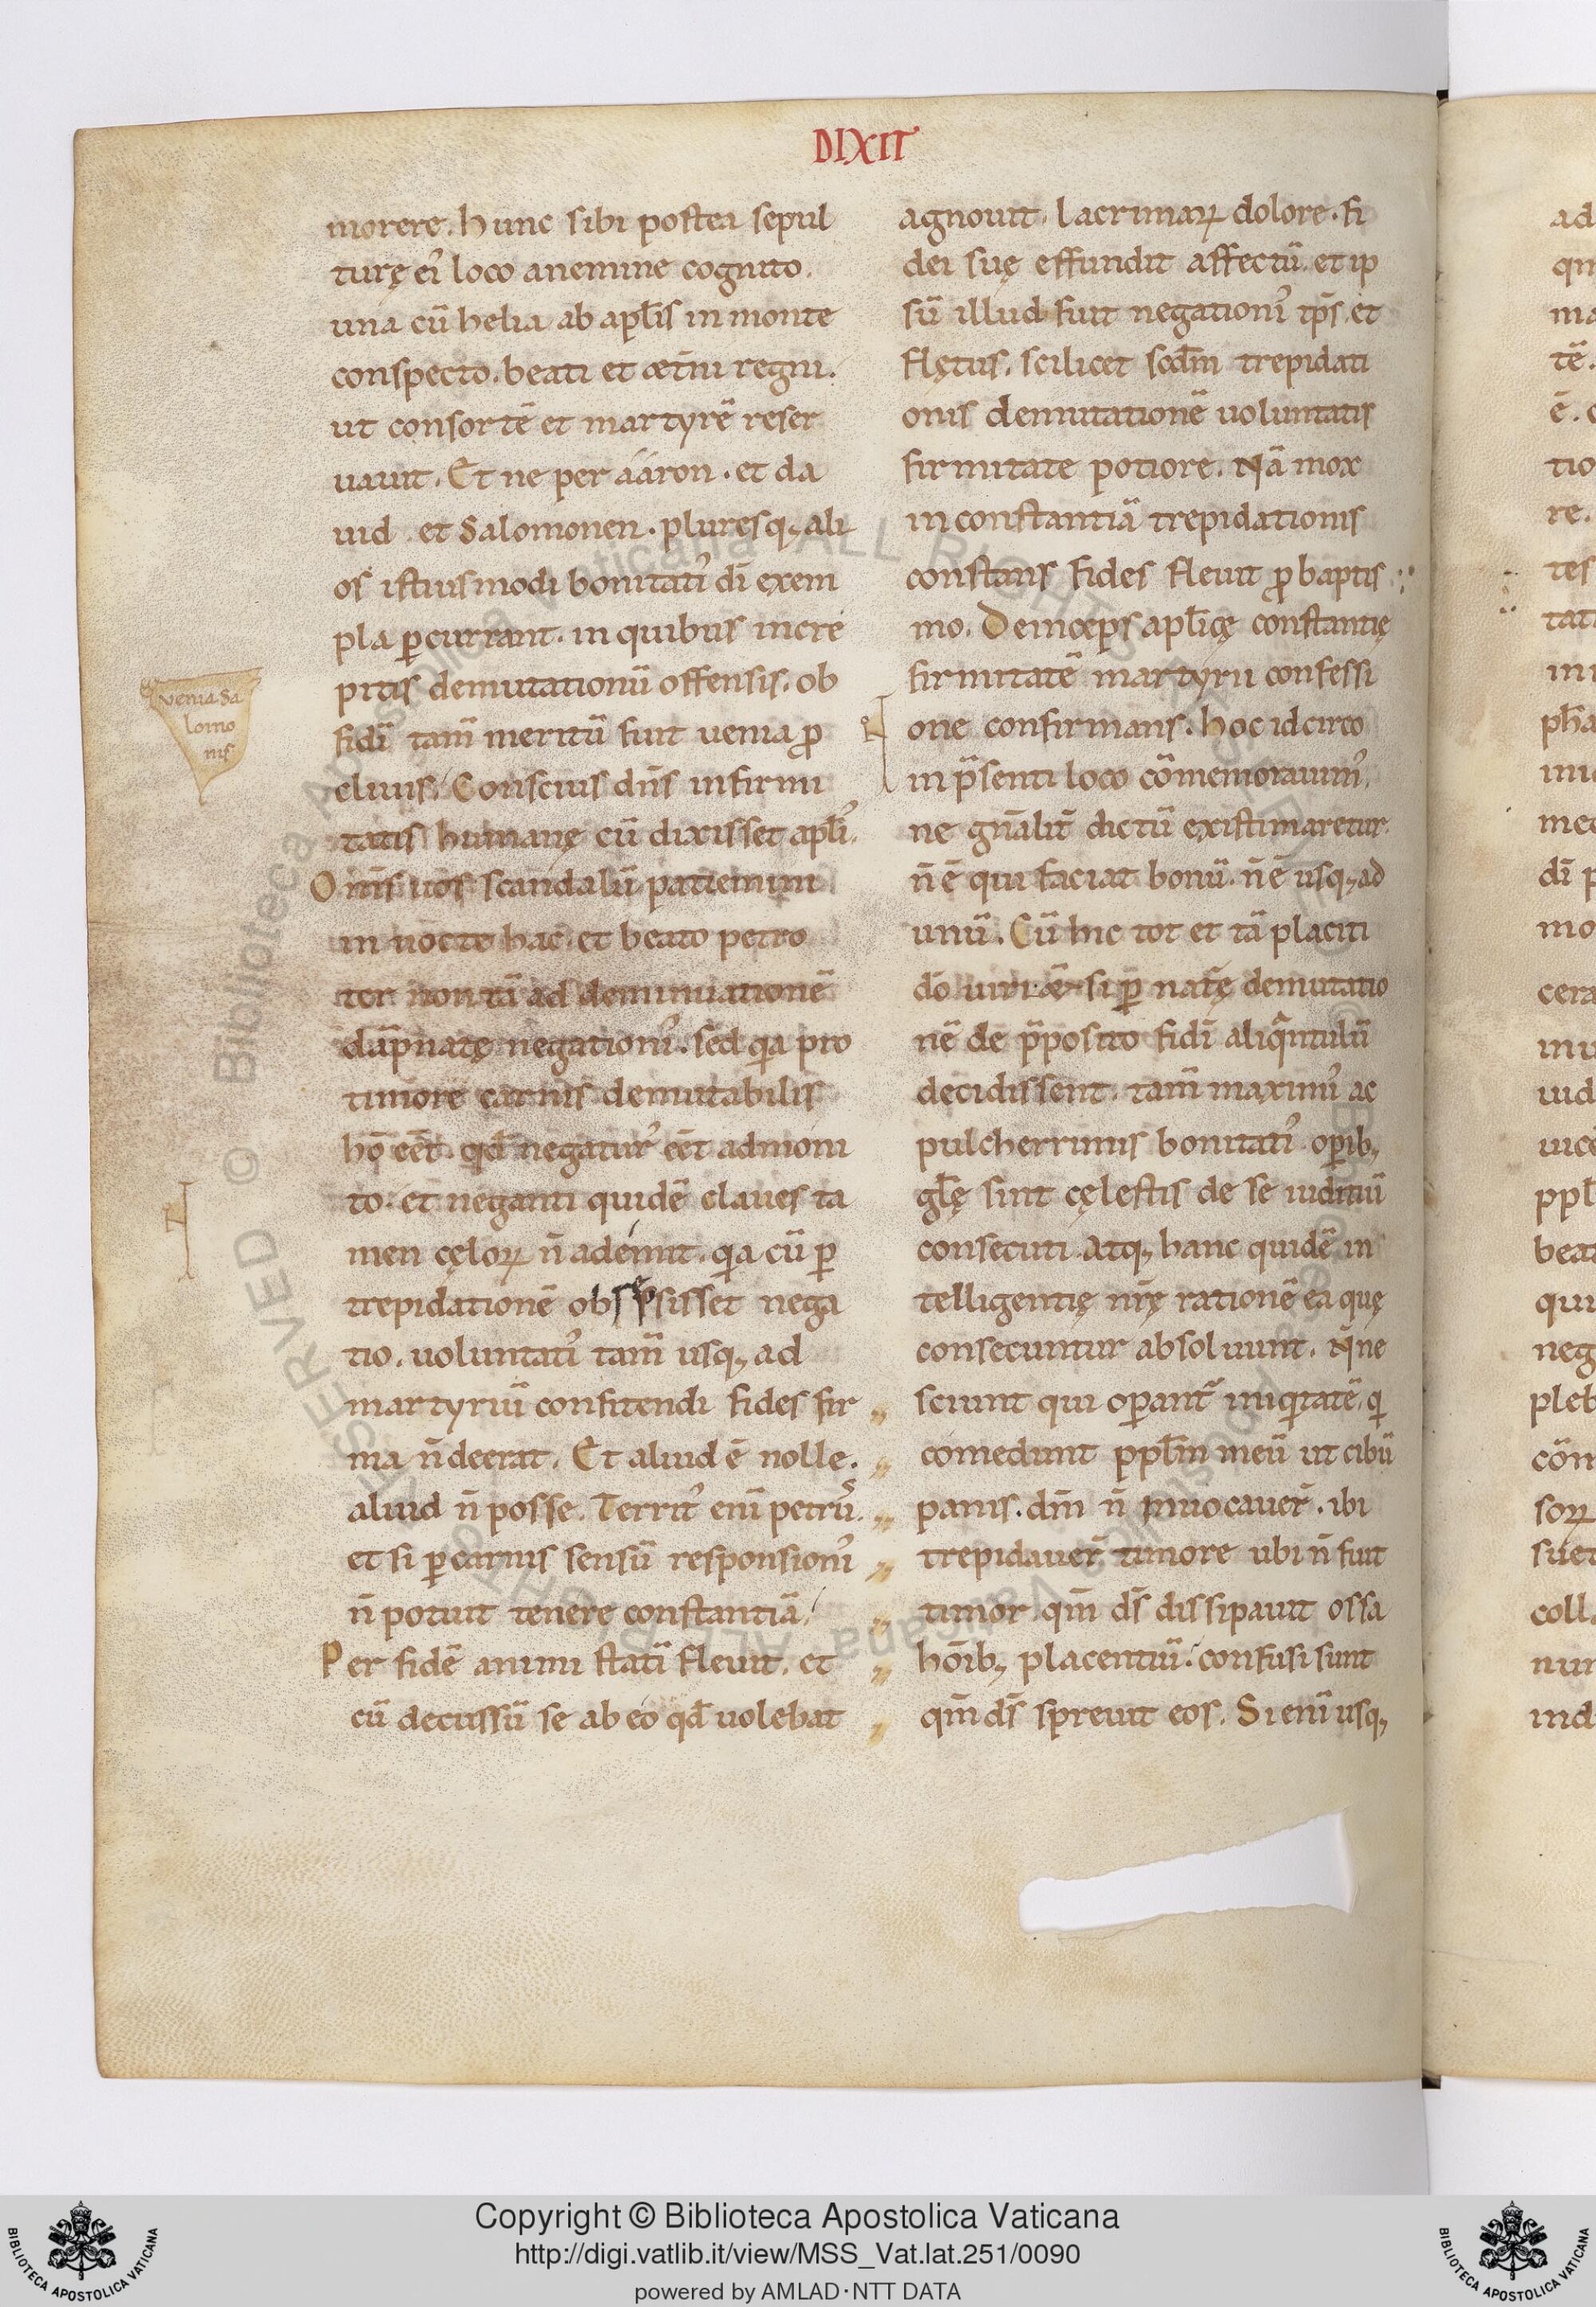 DIXIT
morere. hunc sibi postea sepul
turę ei᷒ loco anemine cognito.
una cū helia ab apl̄is in monte
conspecto. beati et æt̄ni regni.
ut consortē et martyrē reser
uauit. Et ne per ááron. et da
uid. et Salomonen. pluresq; ali
os istiusmodi bonitati᷒ dī exem
pla ꝑcurrant. in quibus incre
pitis demutationū offensis. ob
fidī tam̄ meritū fuit uenia ꝓ
cliuis. Conscius dn̄s infirmi
tatis humanę cū dixisset apl̄i᷒.
Om̄s uos scandalū patiemini
in nocte hac. et beato petro
ter non tā ad denuntiationē
dāpnatę negationi᷒. sed qia pro
timore carnis demutabilis
hō eēt. qd̄ negatur᷒ eēt admoni
to. et neganti quidē claues ta
men cęloꝝ n̄ ademit. qia cū ꝑ
trepidationē obs psisset nega
tio. uoluntati᷒ tam̄ usq; ad
martyriū confitendi fides fir
ma n̄ deerat. Et aliud ē nolle.
aliud n̄ posse. Territ᷒ enī petrus.
et si ꝑ carnis sensū responsioni᷒
n̄ potuit tenere constantiā.
Per fidē animi statī fleuit. et
cū decussū se ab eo qd̄ uolebat
venia Sa
lomo
nis
agnouit. lacrimaꝝ dolore. fi
dei suę effundit affectū. et ip
sū illud fuit negationi᷒ tp̄s. et
flętus. scilicet scd̄m trepidati
onis demutationē uoluntatis
firmitate potiore. Nā mox
inconstantiā trepidationis
constans fides fleuit ꝓ baptis
mo. Deinceps apl̄icę constantię
firmitatē martyrii confessi
one confirmans. hoc idcirco
in p̄senti loco cōmemorauim᷒.
ne gn̄alit̄ dictū existimaretur.
n̄ ē qui faciat bonū. n̄ ē usq; ad
unū. Cū hic tot et tā placiti
dō uiri. æ si ꝑ nat̄ę demutatio
nē de p̄posito fidī aliqntulū
decidissent. tam̄ maximi᷒ ac
pulcherrimis bonitati᷒ oꝑib;
gl̄ę sint cęlestis de se iuditiū
consecuti. Atq; hanc quidē in
telligentię nr̄ę rationē ea quę
consecuntur absoluunt. N̄ne
sciunt qui oꝑant᷑ iniqitatē. qi
comedunt ppl̄m meū ut cibū
panis. dm̄ n̄ inuocauer̄. ibi
trepidauer̄ timore ubi n̄ fuit
timor. qm̄ ds̄ dissipauit ossa
hōib; placentiū. confusi sunt
qm̄ ds̄ spreuit eos. Si enī usq;
Copyright © Biblioteca Apostolica Vaticana
http://digi.vatlib.it/view/MSS_Vat.lat.251/0090
powered by AMLAD·NTT DATA
BIBLIOTECA APOSTOLICA VATICANA
BIBLIOTECA APOSTOLICA VATICANA